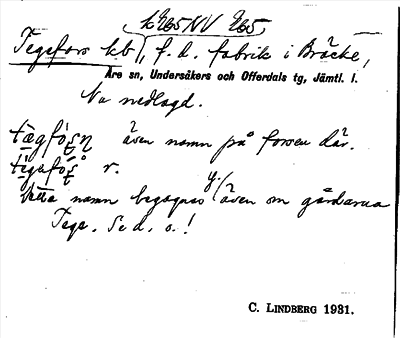 k 965 NV 965
Tegefors kb, f. d. fabrik i Bräcke,
Åre sn, Undersåkers och Offerdals tg, Jämtl. l.
Nu nedlagd.
även namn på forsen där.
r.
Detta namn begagnas även om gårdarna
Tege. Se d. o.!
C. LINDBERG 1931.